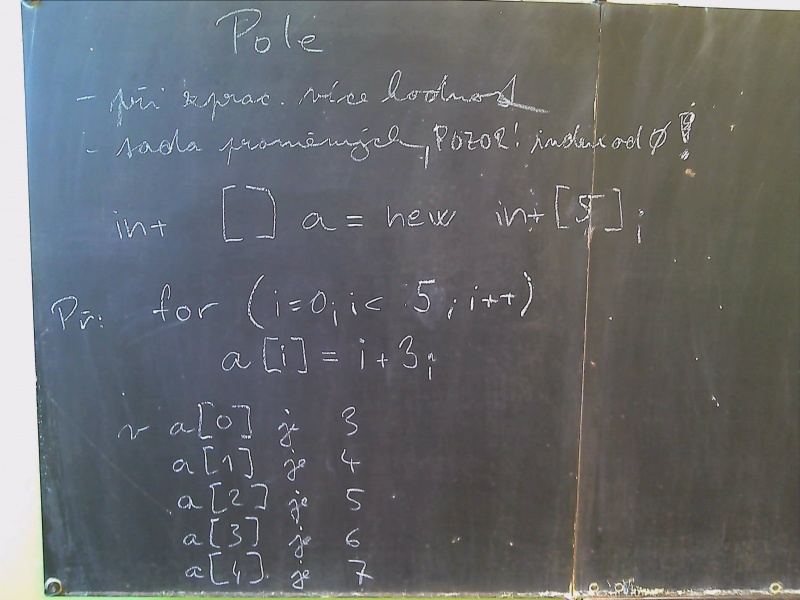 Pole
- při zprac. více hodnot
- sada proměnných, POZOR! index od 0!
int [] a = new int [5];
Př: for (i=0; i< 5; i++)
a [i] = i+3;
v a[0] je 3
a[1] je 4
a[2] je 5
a[3] je 6
a[4] je 7